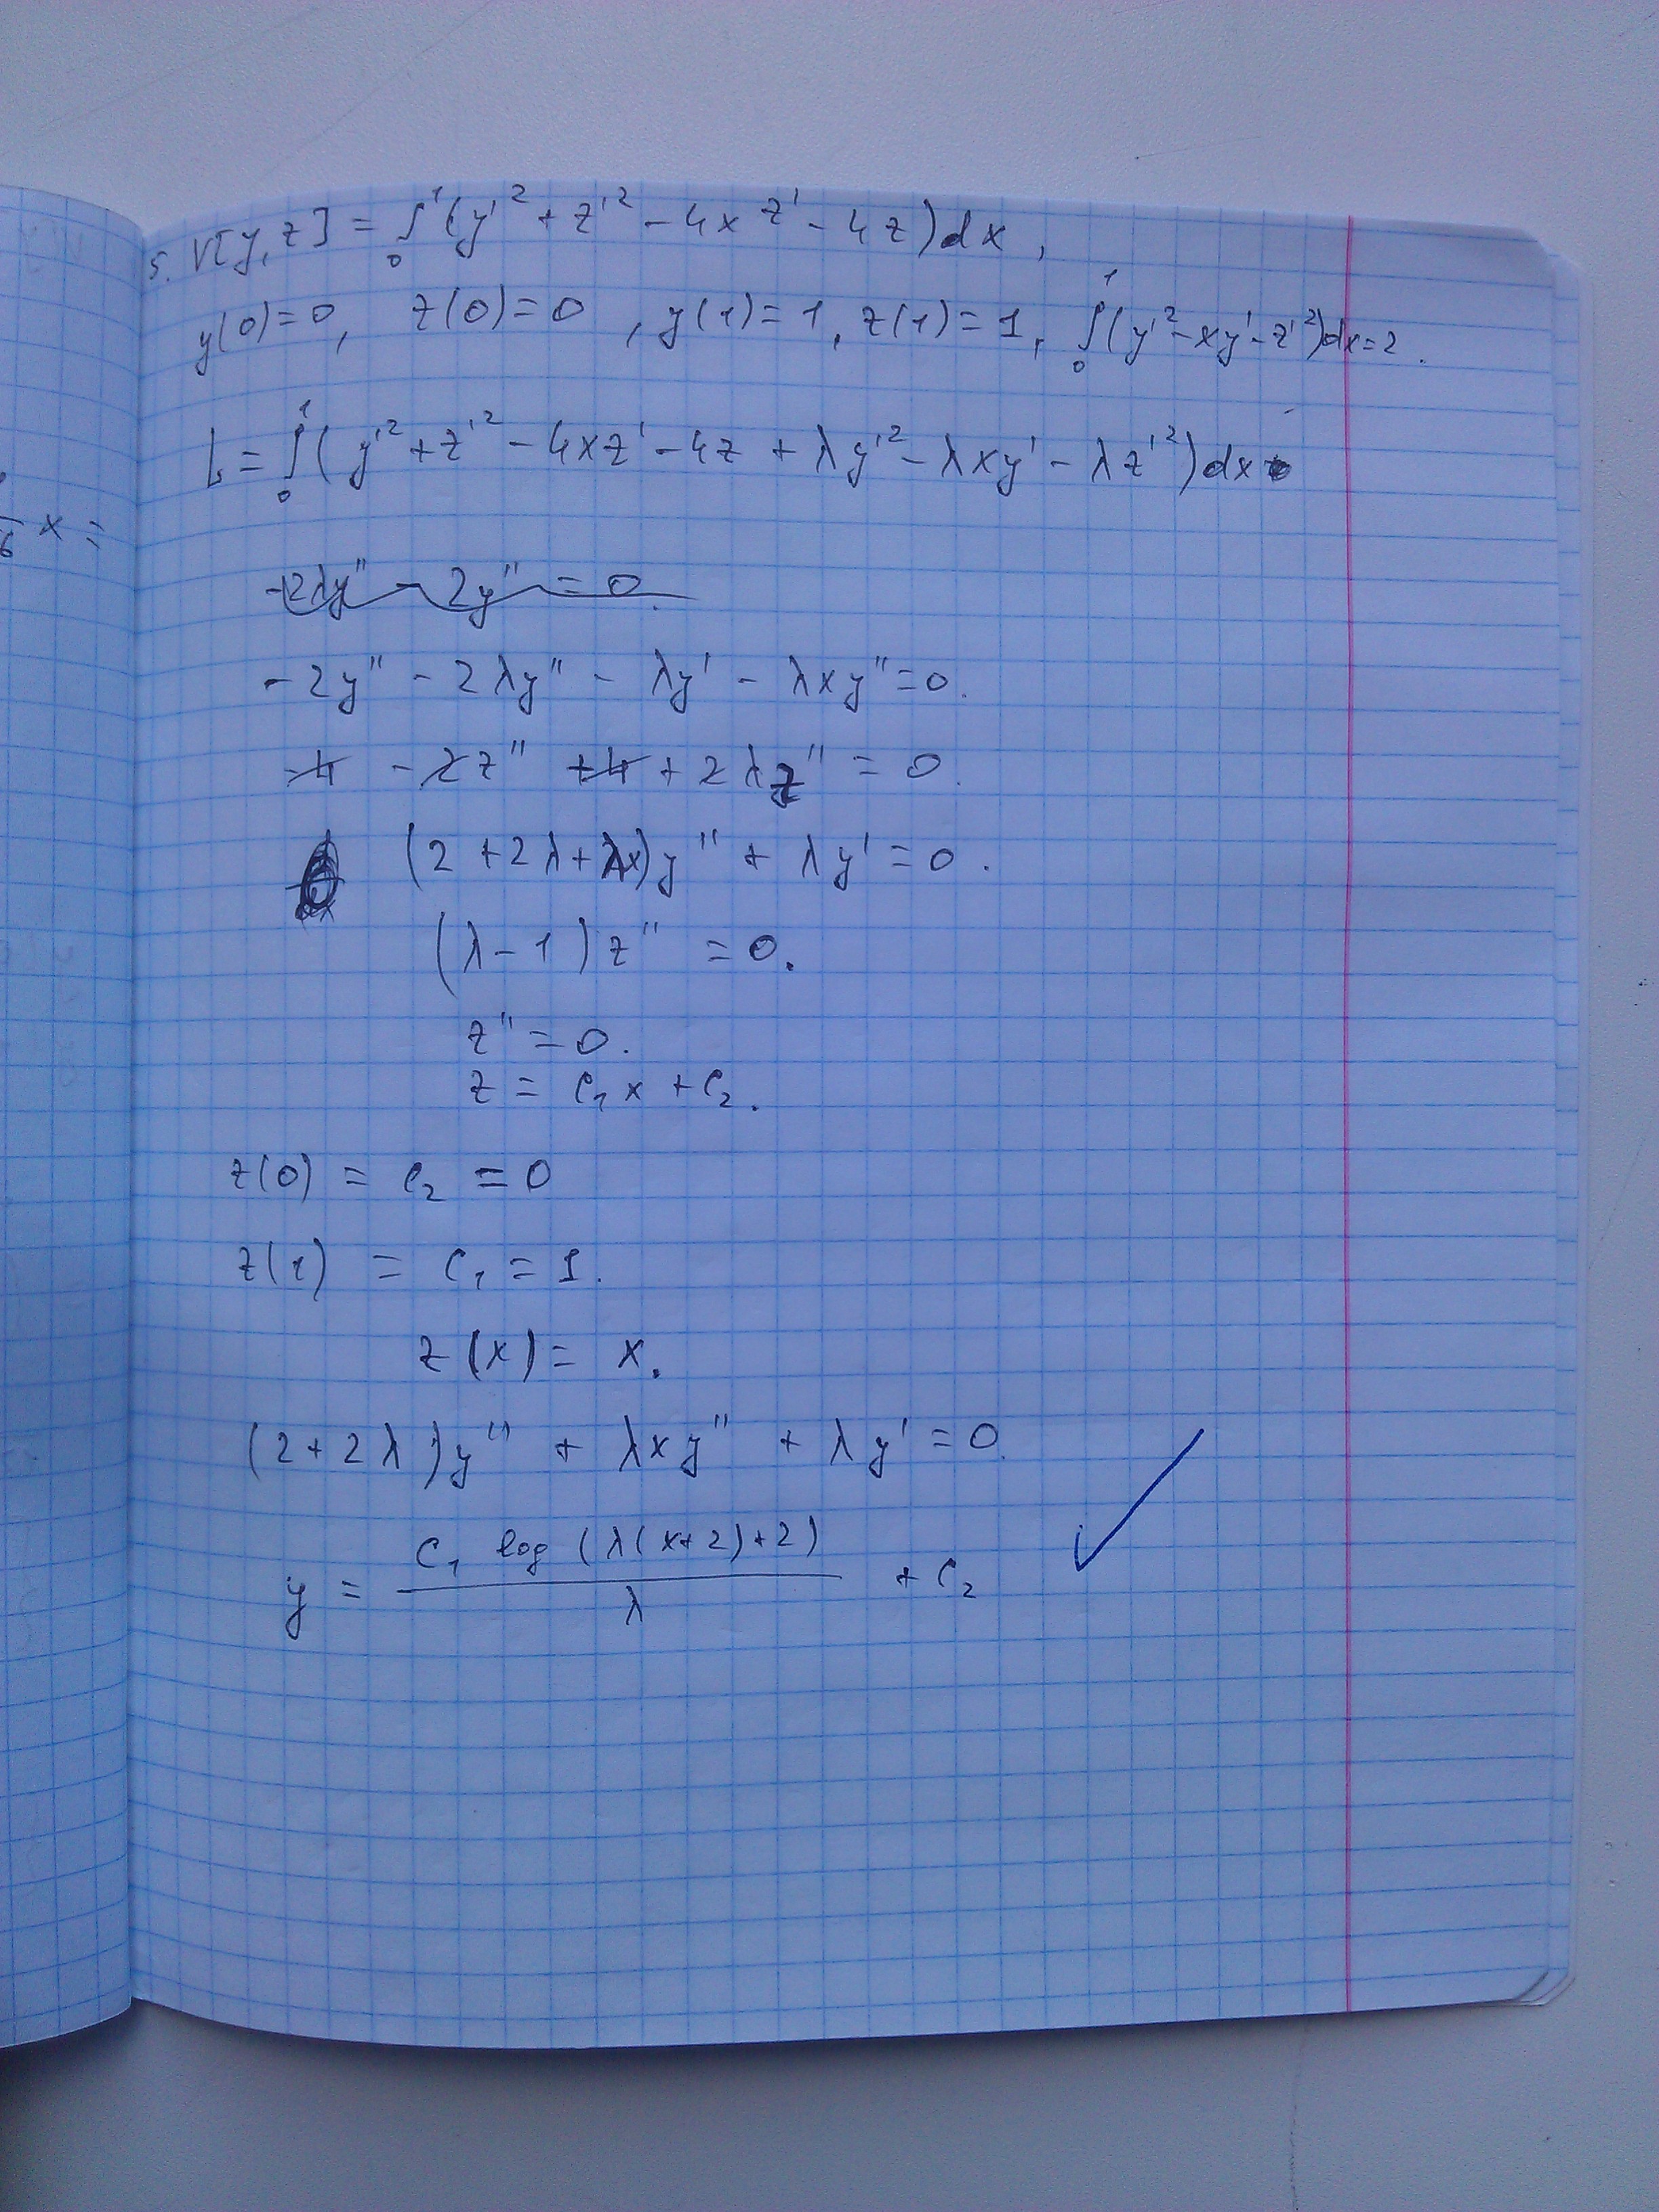 5. V[y, z] = ∫₀¹ (y'² + z'² - 4xz' - 4z)dx,
y(0)=0, z(0)=0, y(1)=1, z(1)=1, ∫₀¹ (y'² - xy' - z'²)dx=2.
L = ∫₀¹ (y'² + z'² - 4xz' - 4z + λy'² - λxy' - λz'²)dx
6 x =
-2λy'' - 2y'' = 0.
-2y'' - 2λy'' - λy' - λxy'' = 0.
-4 - 2z'' + 4 + 2λz'' = 0.
(2 + 2λ + λx)y'' + λy' = 0.
(λ - 1)z'' = 0.
z'' = 0.
z = C₁x + C₂.
z(0) = C₂ = 0
z(1) = C₁ = 1.
z(x) = x.
(2 + 2λ)y'' + λxy'' + λy' = 0.
y = C₁ log(λ(x+2)+2) / λ + C₂